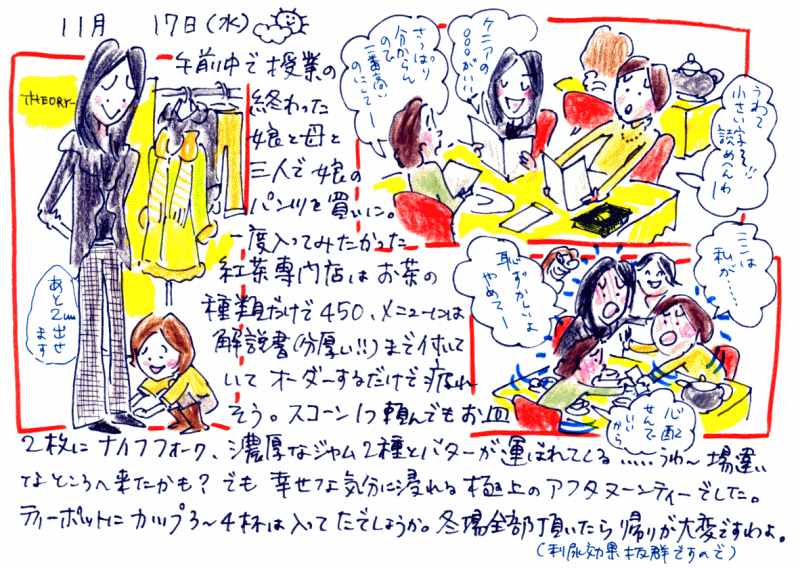 11月 17日(水)
午前中で授業の
終わった
娘と母と
三人で娘の
パンツを買いに。
一度入ってみたかった
紅茶専門店はお茶の
種類だけで450、メニューには
解説書(分厚い!!)まで付いて
いてオーダーするだけで疲れ
そう。スコーン1つ頼んでもお皿
2枚にナイフフォーク、濃厚なジャム2種とバターが運ばれてくる……うわ〜場違い
なところへ来たかも?でも幸せな気分に浸れる極上のアフタヌーンティーでした。
ティーポットにカップ3〜4杯は入ってたでしょうか。冬場全部頂いたら帰りが大変ですわよ。
(利尿効果抜群ですので)
THEORY
あと2cm出せ
ます
さっぱり
分からん
ので
一番高い
のにしてー
ケニアの
〇〇〇がいい
うわっ
小さい字!!
読めんわ
ー
ここは
私が……
恥ずかしいよ
やめてー
心配
せんで
いい
から